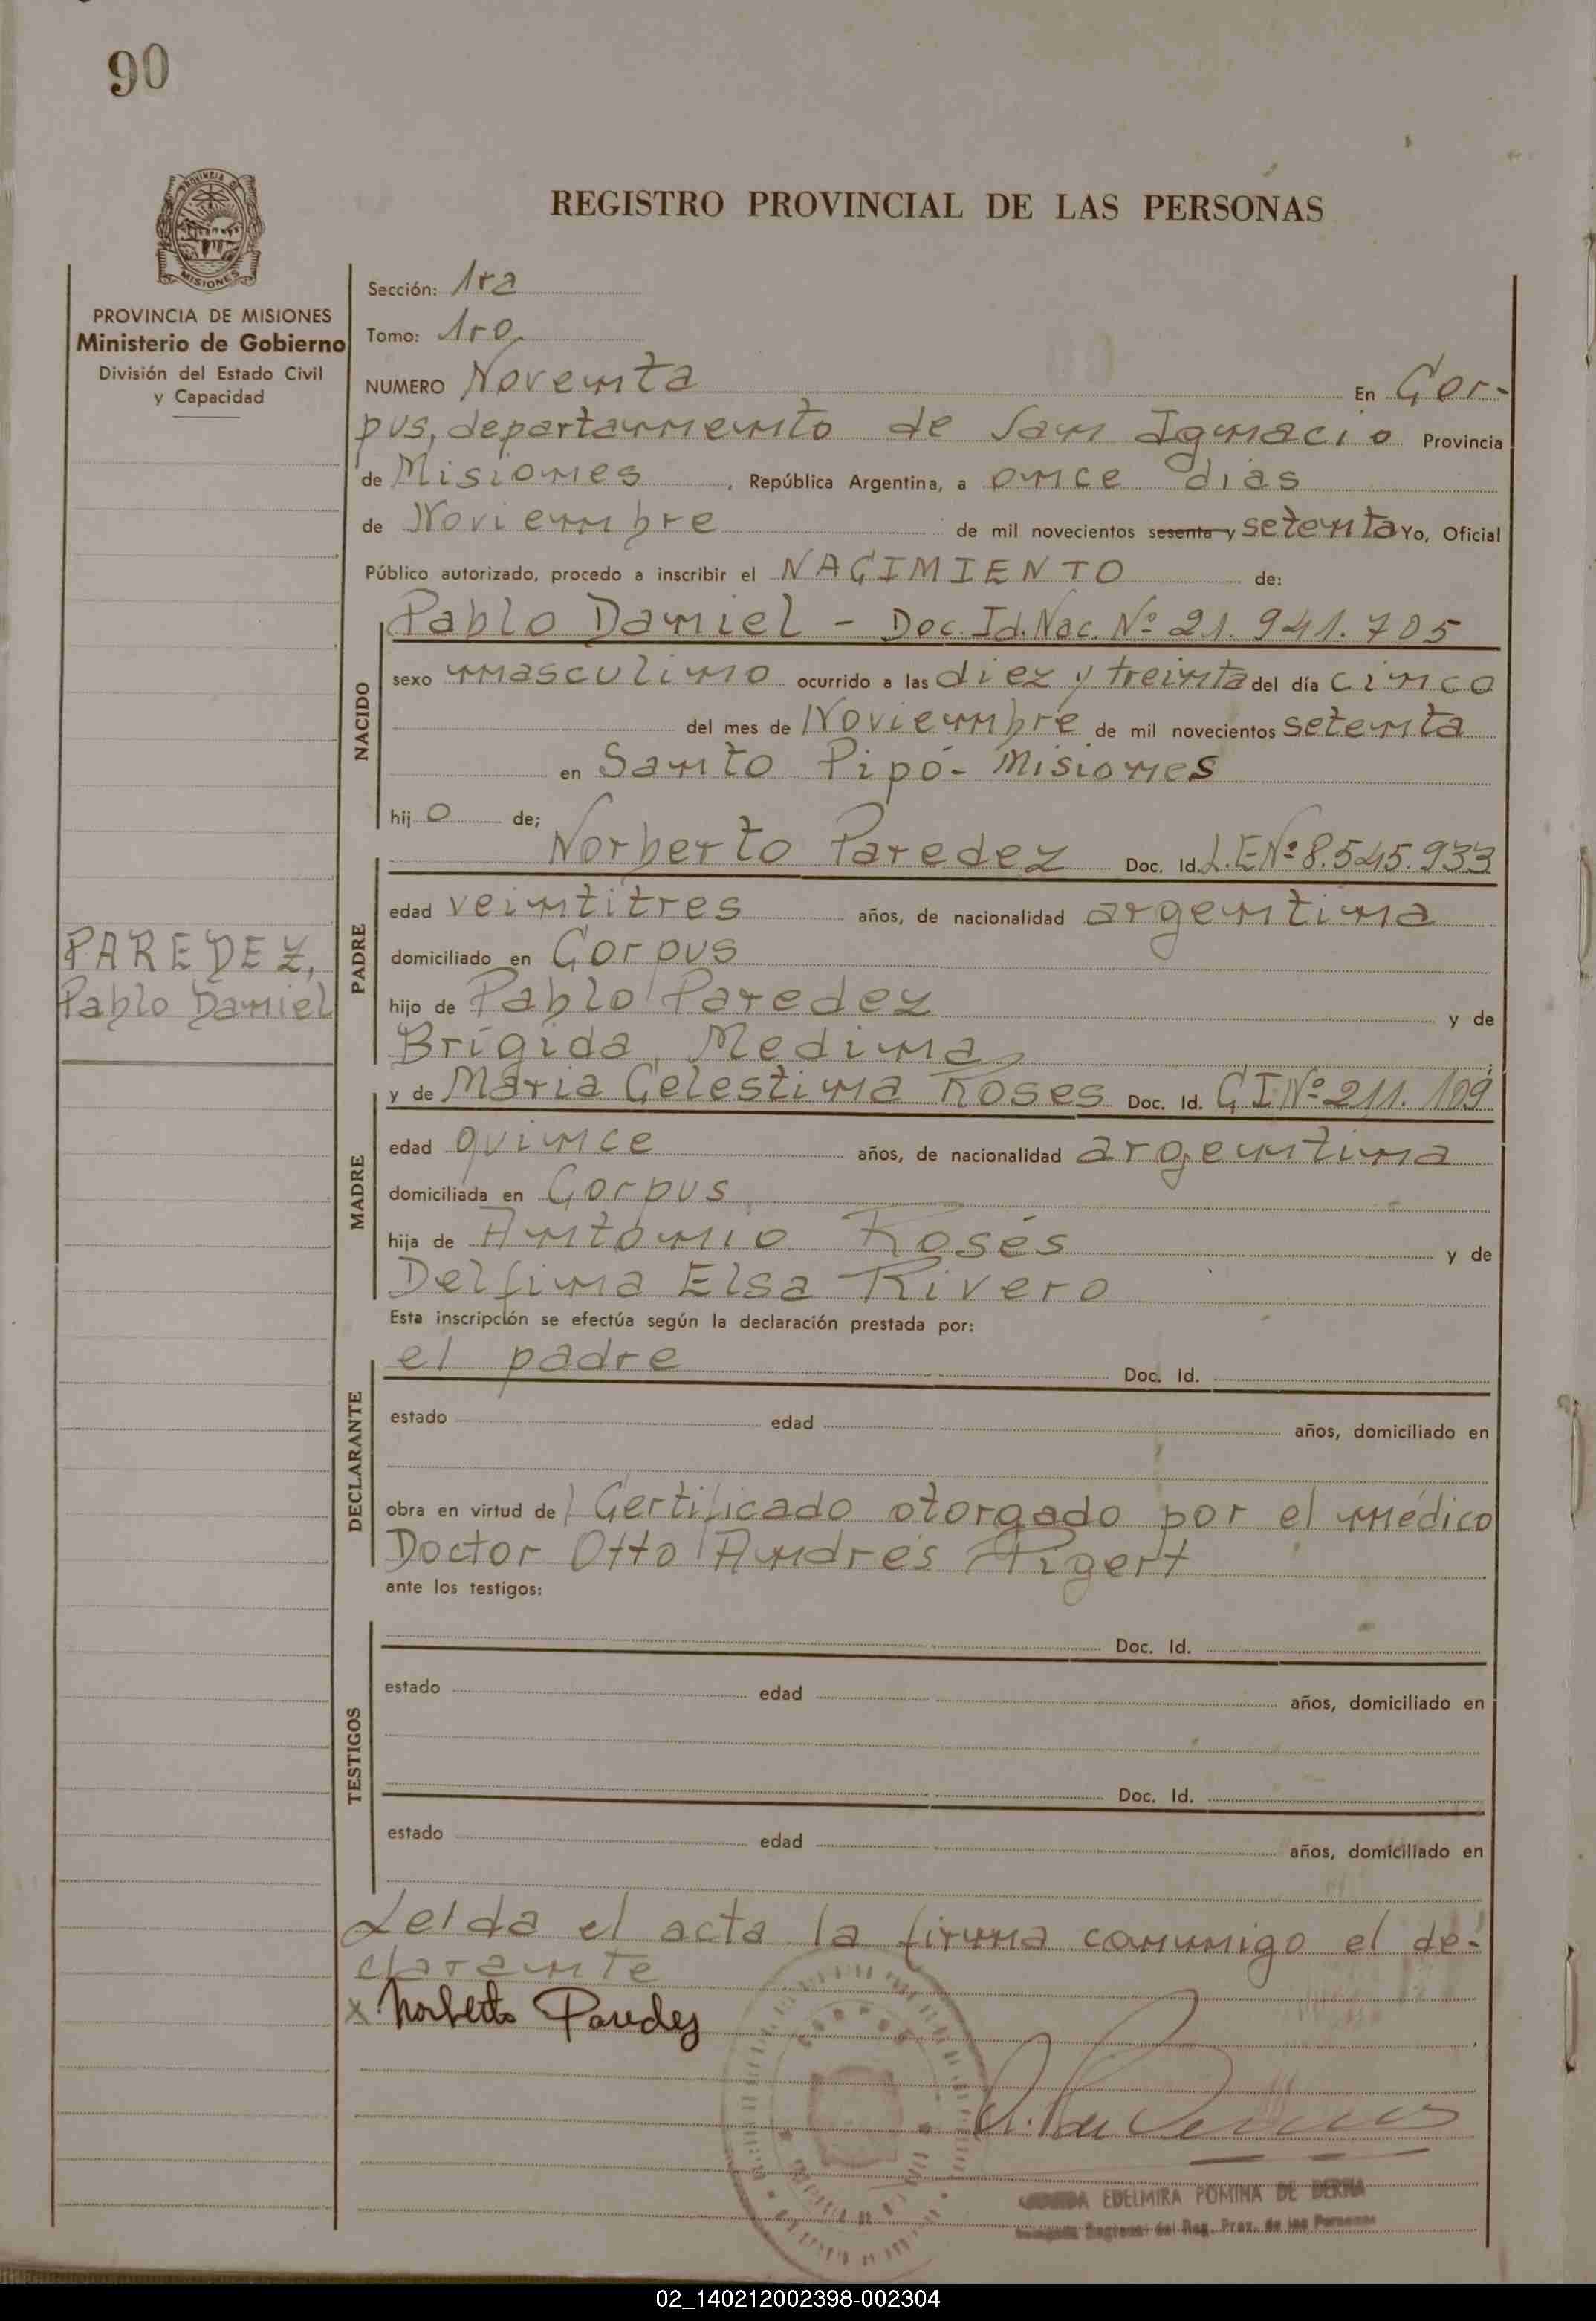 90
PROVINCIA DE MISIONES
REGISTRO PROVINCIAL DE LAS PERSONAS
PROVINCIA DE MISIONES
Ministerio de Gobierno
División del Estado Civil
y Capacidad
Sección: 1ra
Tomo: 1ro
NUMERO Noventa En Cor-
pus, departamento de San Ignacio Provincia
de Misiones, República Argentina, a once dias
de Noviembre de mil novecientos sesenta y setenta Yo, Oficial
Público autorizado, procedo a inscribir el NACIMIENTO de:
NACIDO
Pablo Daniel - Doc. Id. Nac. Nº 21.941.705
sexo masculino ocurrido a las diez y treinta del día cinco
del mes de Noviembre de mil novecientos setenta
en Santo Pipó - Misiones
hijo de;
PADRE
Norberto Paredez Doc. Id. L.E Nº 8.545.933
edad veintitres años, de nacionalidad argentina
domiciliado en Corpus
hijo de Pablo Paredez y de
Brígida Medina
PAREDEZ,
Pablo Daniel
MADRE
y de Maria Celestina Roses Doc. Id. C I Nº 211.109
edad quince años, de nacionalidad argentina
domiciliada en Corpus
hija de Antonio Rosés y de
Delfina Elsa Rivero
Esta inscripción se efectúa según la declaración prestada por:
DECLARANTE
el padre Doc. Id.
estado edad años, domiciliado en
obra en virtud de Certificado otorgado por el médico
Doctor Otto Andrés
ante los testigos:
TESTIGOS
Doc. Id.
estado edad años, domiciliado en
Doc. Id.
estado edad años, domiciliado en
Leida el acta la firma conmigo el de-
clarante
x Norberto Paredez
EDELMIRA POMINA DE
Reg. Prov. de las Personas
02_140212002398-002304